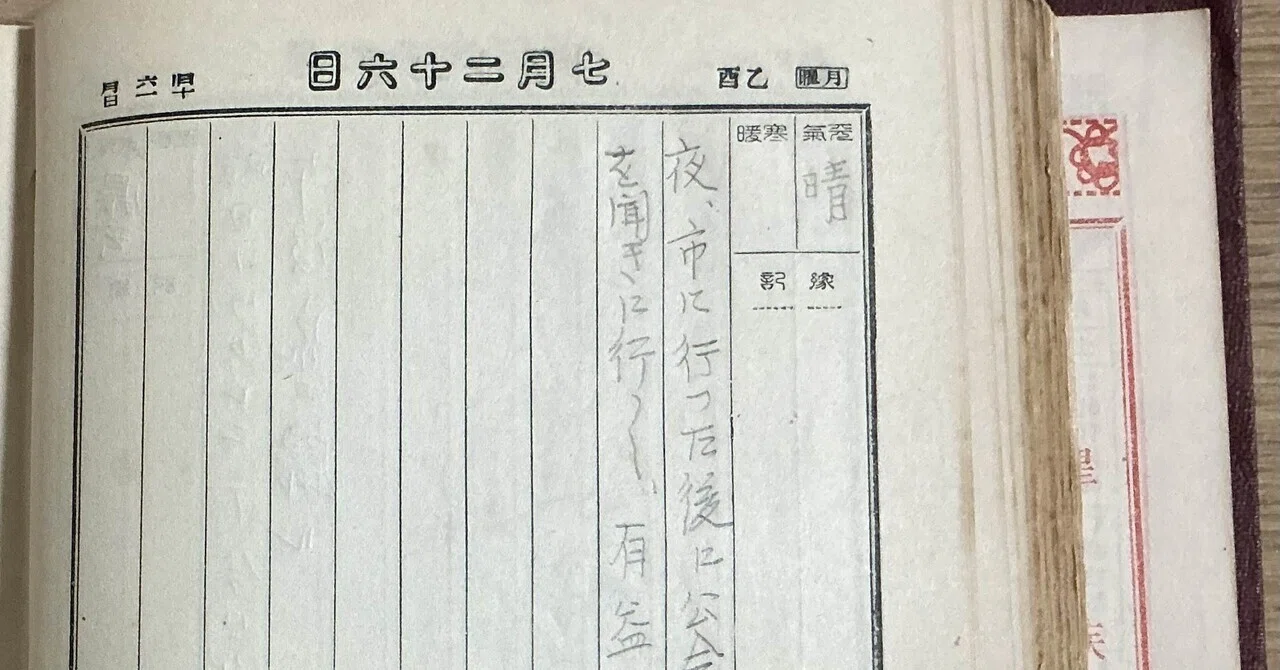 月曜 乙酉
七月二十六日
天氣 寒暖
晴
豫記
夜、市に行った後に公
を聞きに行く、有益